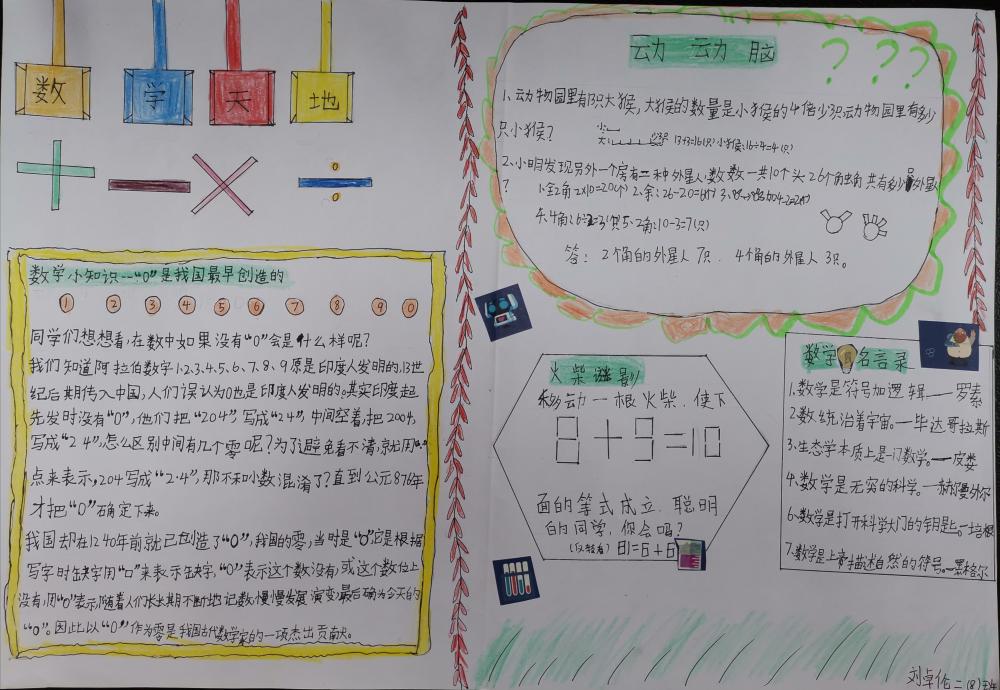 数学天地
数学小知识--"0"是我国最早创造的
① ② ③ ④ ⑤ ⑥ ⑦ ⑧ ⑨ ⓪
同学们想想看,在数中如果没有"0"会是什么样呢?
我们知道阿拉伯数字1、2、3、4、5、6、7、8、9原是印度人发明的,13世
纪后期传入中国,人们误认为0也是印度人发明的。其实印度起
先发时没有"0",他们把"204"写成"24",中间空着,把2004,
写成"2 4",怎么区别中间有几个零呢?为了避免看不清,就用"."
点来表示,204写成"2·4",那不和小数混淆了?直到公元876年
才把"0"确定下来。
我国却在1240年前就已创造了"0",我国的零,当时是"0"它是根据
写字时缺字用"□"来表示缺字,"0"表示这个数没有,或这个数位上
没有,用"0"表示,随着人们长期不断地记数,慢慢发展演变,最后确为今天的
"0"。因此以"0"作为零是我国古代数学家的一项杰出贡献。
动动脑
? ? ?
1、动物园里有13只大猴,大猴的数量是小猴的4倍少3只动物园里有多少
只小猴?
13+3=16(只) 小猴:16÷4=4(只)
2、小明发现另外一个房有二种外星人,数数一共10个头26个角 共有多少外星人
?
1、全2角 2×10=20(个) 2、余:26-20=6(个)
5、2角:10-3=7(只)
答:2个角的外星人7只. 4个角的外星人3只。
火柴谜影
移动一根火柴,使下
8+9=10
面的等式成立.聪明
的同学,你会吗?
数学名言录
1、数学是符号加逻辑——罗素
2、数统治着宇宙。—毕达哥拉斯
3、生态学本质上是一门数学。—皮娄
4、数学是无穷的科学。—赫尔曼外尔
6、数学是打开科学大门的钥匙。—培根
7、数学是上帝描述自然的符号。—黑格尔
刘卓伦二(8)